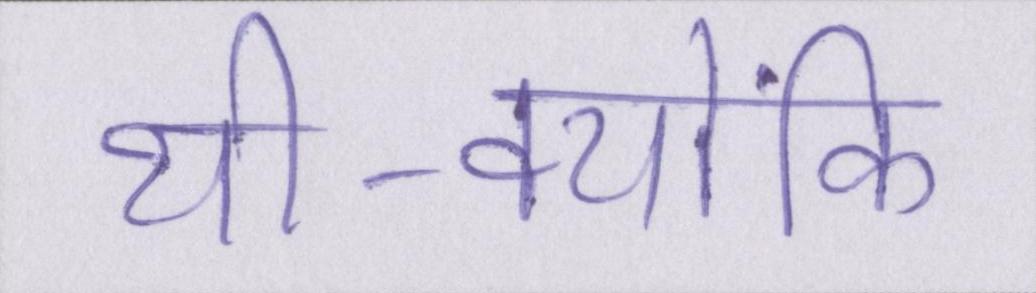 थी-क्योंकि